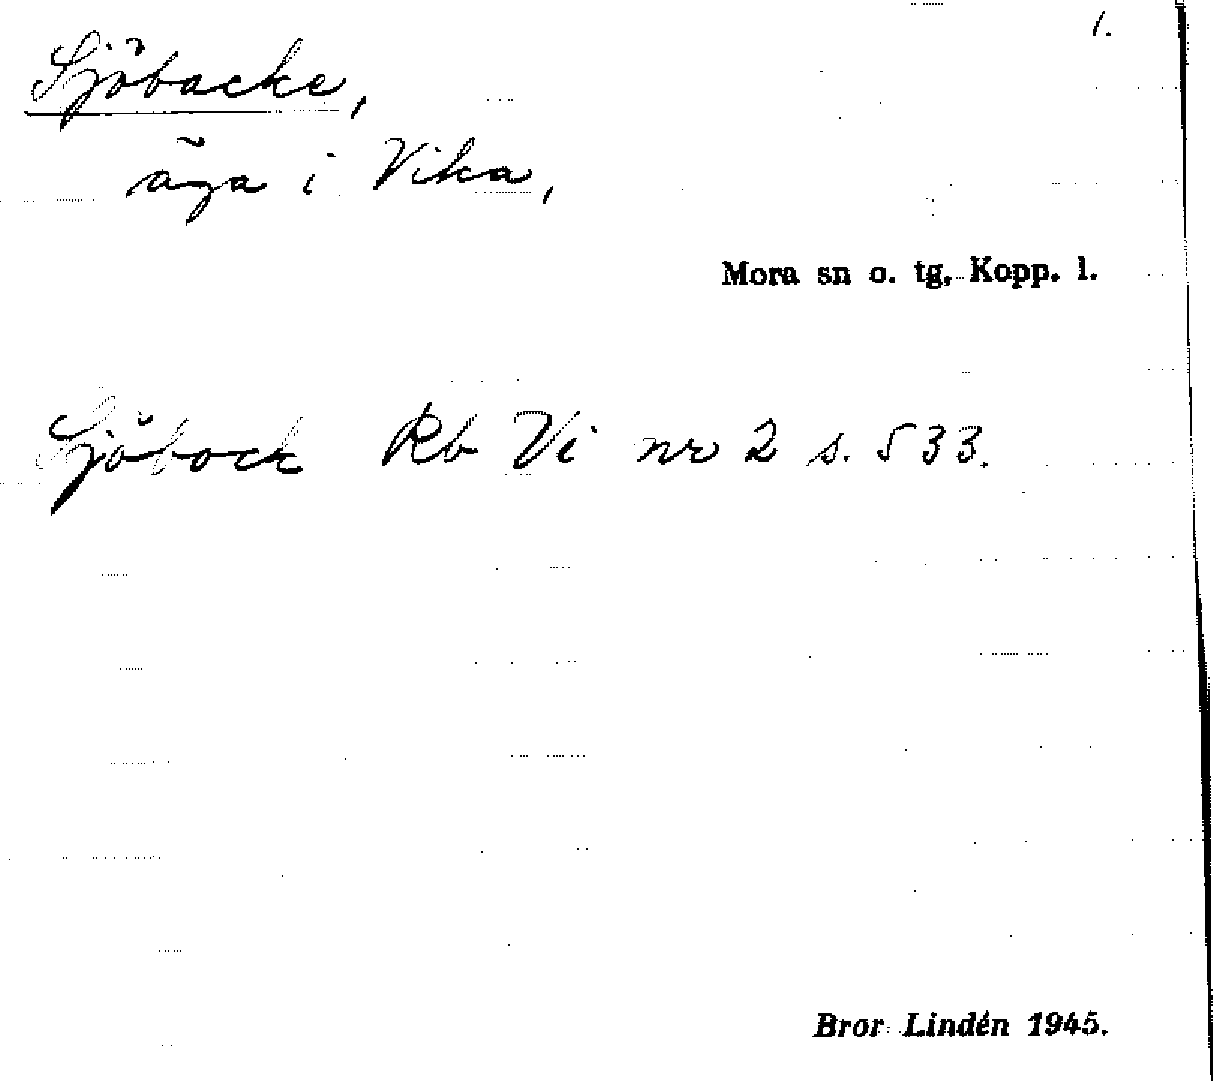 1.
Sjöbacke,
äga i Vika,
Mora sn o. tg, Kopp. l.
Sjöbock Rb Vi nr 2 s. 533.
Bror Lindén 1945.